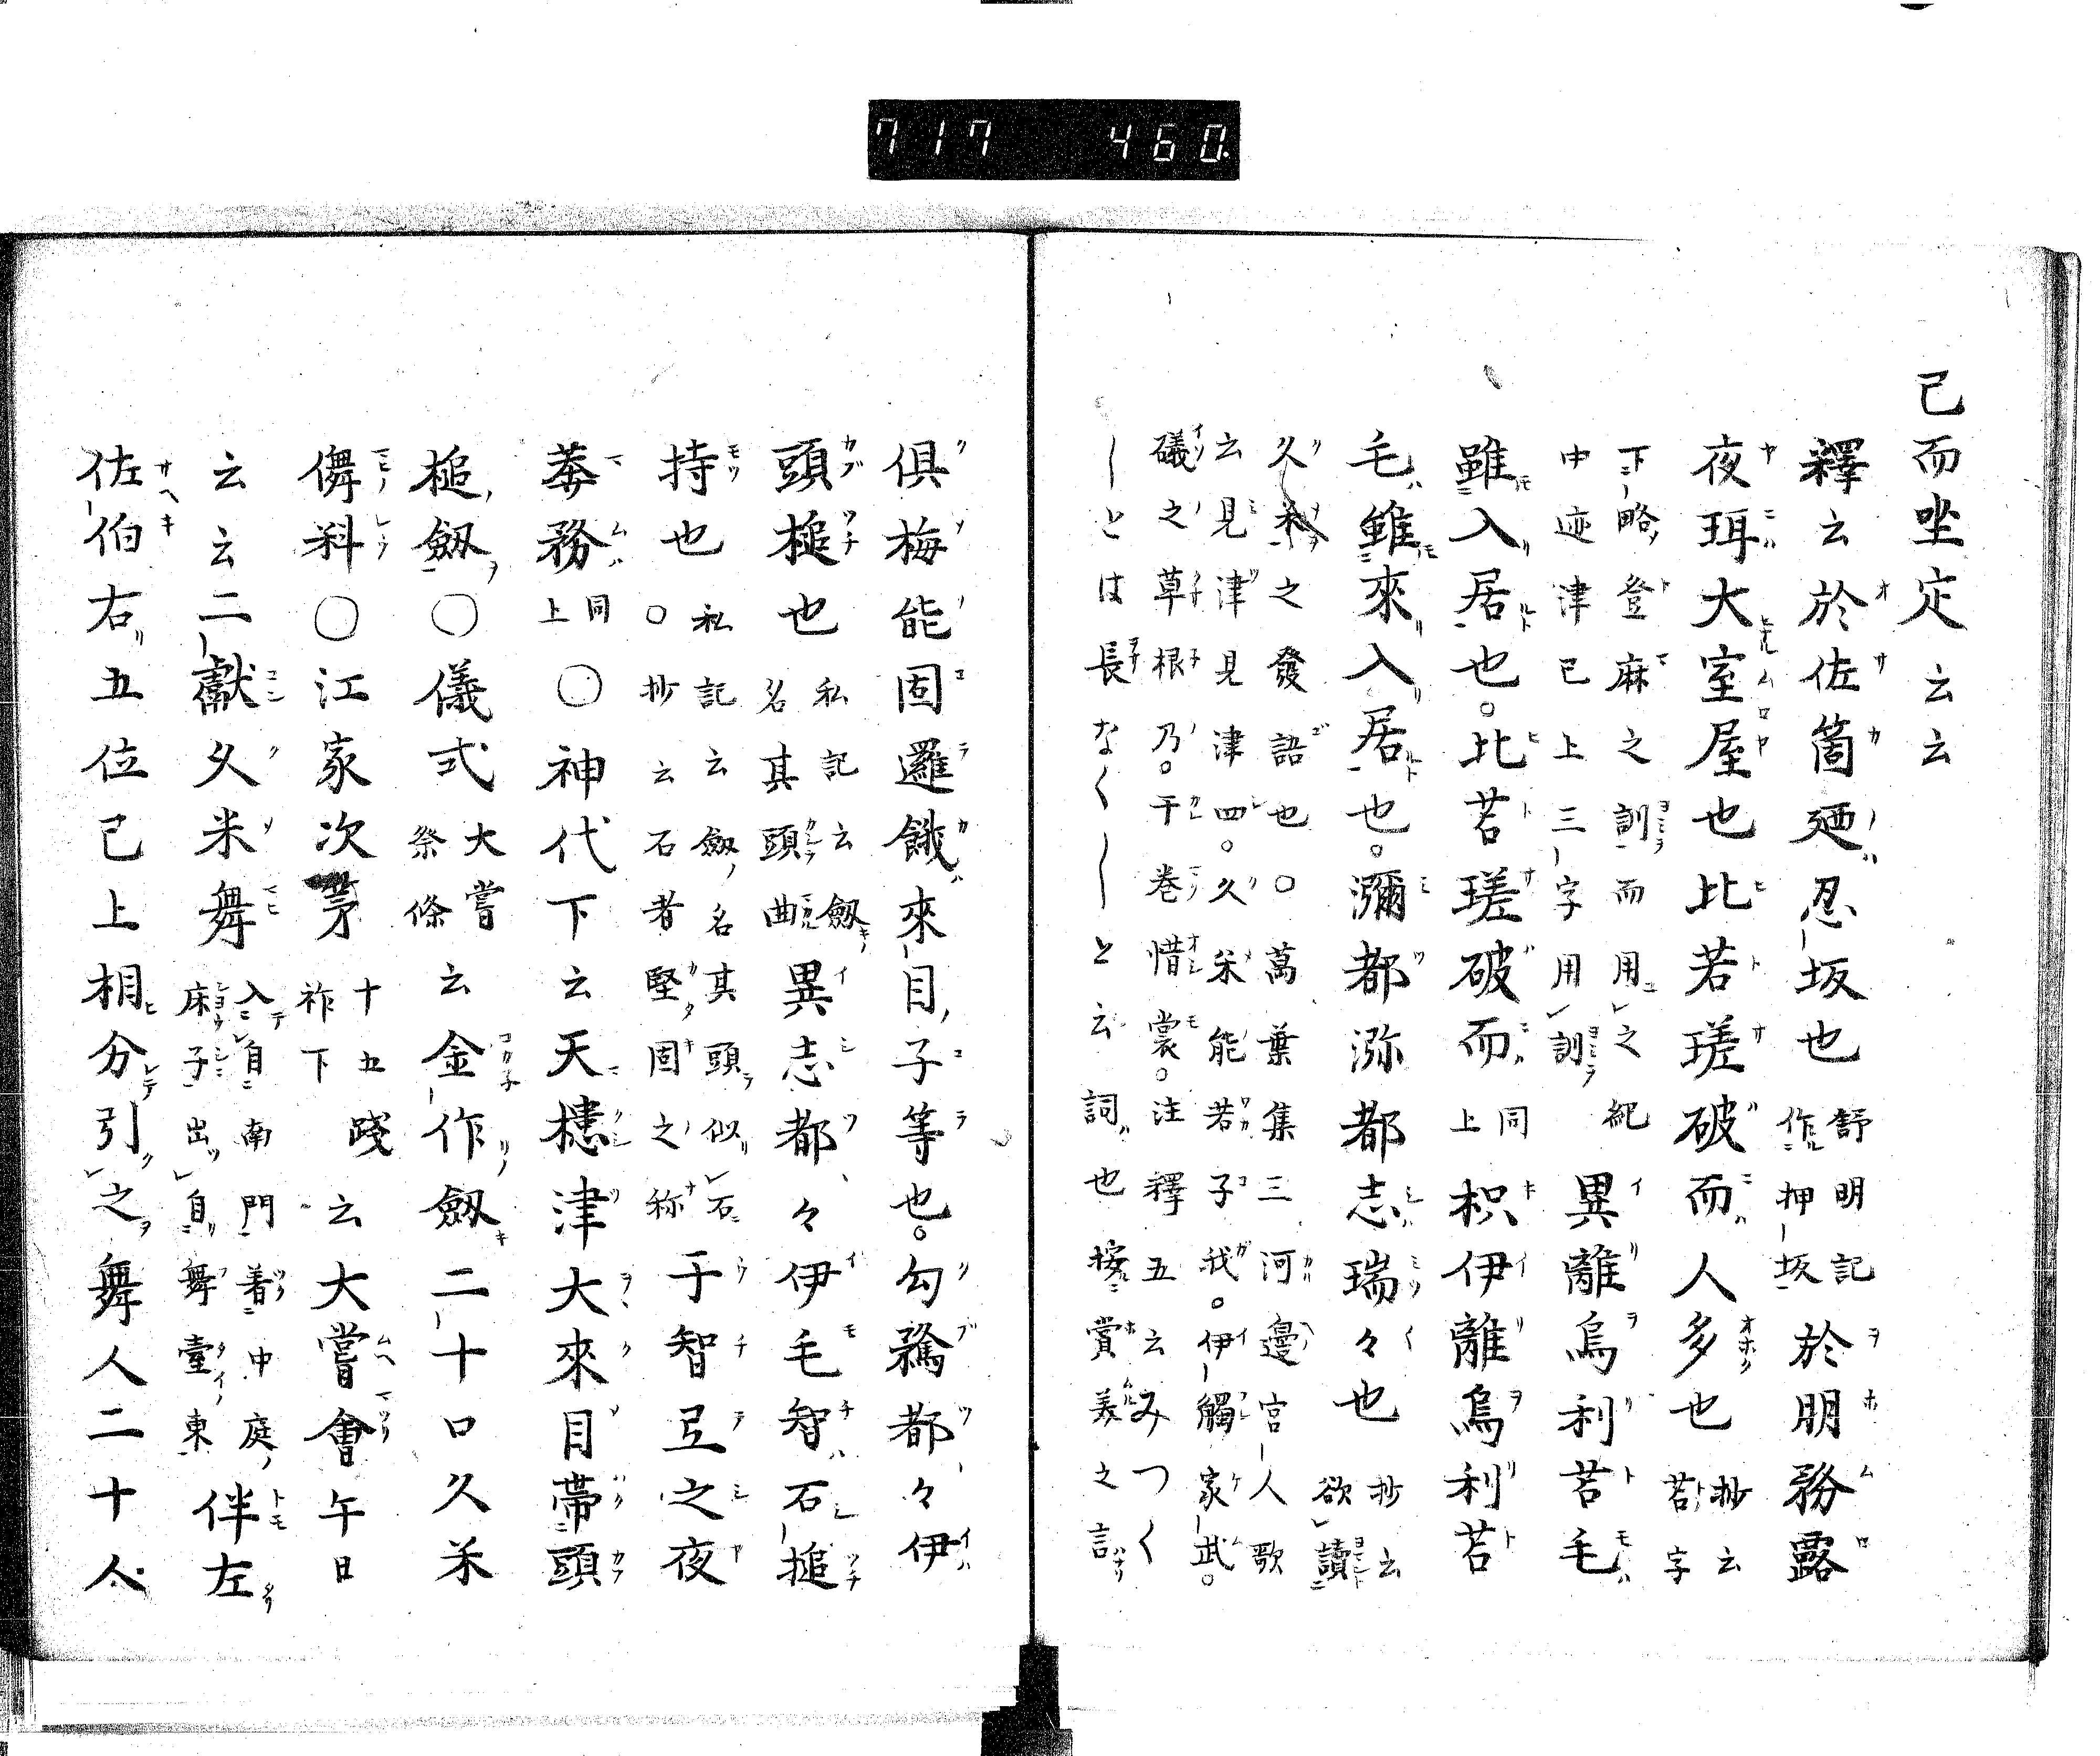 717 460.
已而坐定云云
釋云於佐箇廼忍坂也舒明記作押坂於朋務露
夜珥大室屋也比苔瑳破而人多也抄云苔字
下略登麻之訓而用之紀
中迹津已上三字用訓異離烏利苔毛
雖入居也。比苔瑳破而同上枳伊離烏利苔
毛雖來入居也。瀰都瀰都志瑞々也抄云欲讀
久米之發語也〇萬葉集三河邊宮人歌
云見津見津四。久米能若子我。伊觸家武。
礒之草根乃。干巻惜裳。注釋五云みつく
〳〵とは長なく〳〵と云詞也按賞美之言
倶梅能固邏餓來目子等也。勾騖都々伊
頭槌也私記云劔名其頭曲異志都々伊毛智石槌
持也私記云劔名其頭似石〇抄云石者堅固之称于智弖之夜
莽務同上〇神代下云天槵津大來目帶頭
槌劔〇儀式大嘗祭條云金作劔二十口久米
儛料〇江家次第十五踐祚下云大嘗會午日
云云二獻久米舞入自南門着中庭床子出自舞臺東伴左
佐伯右五位已上相分引之舞人二十人